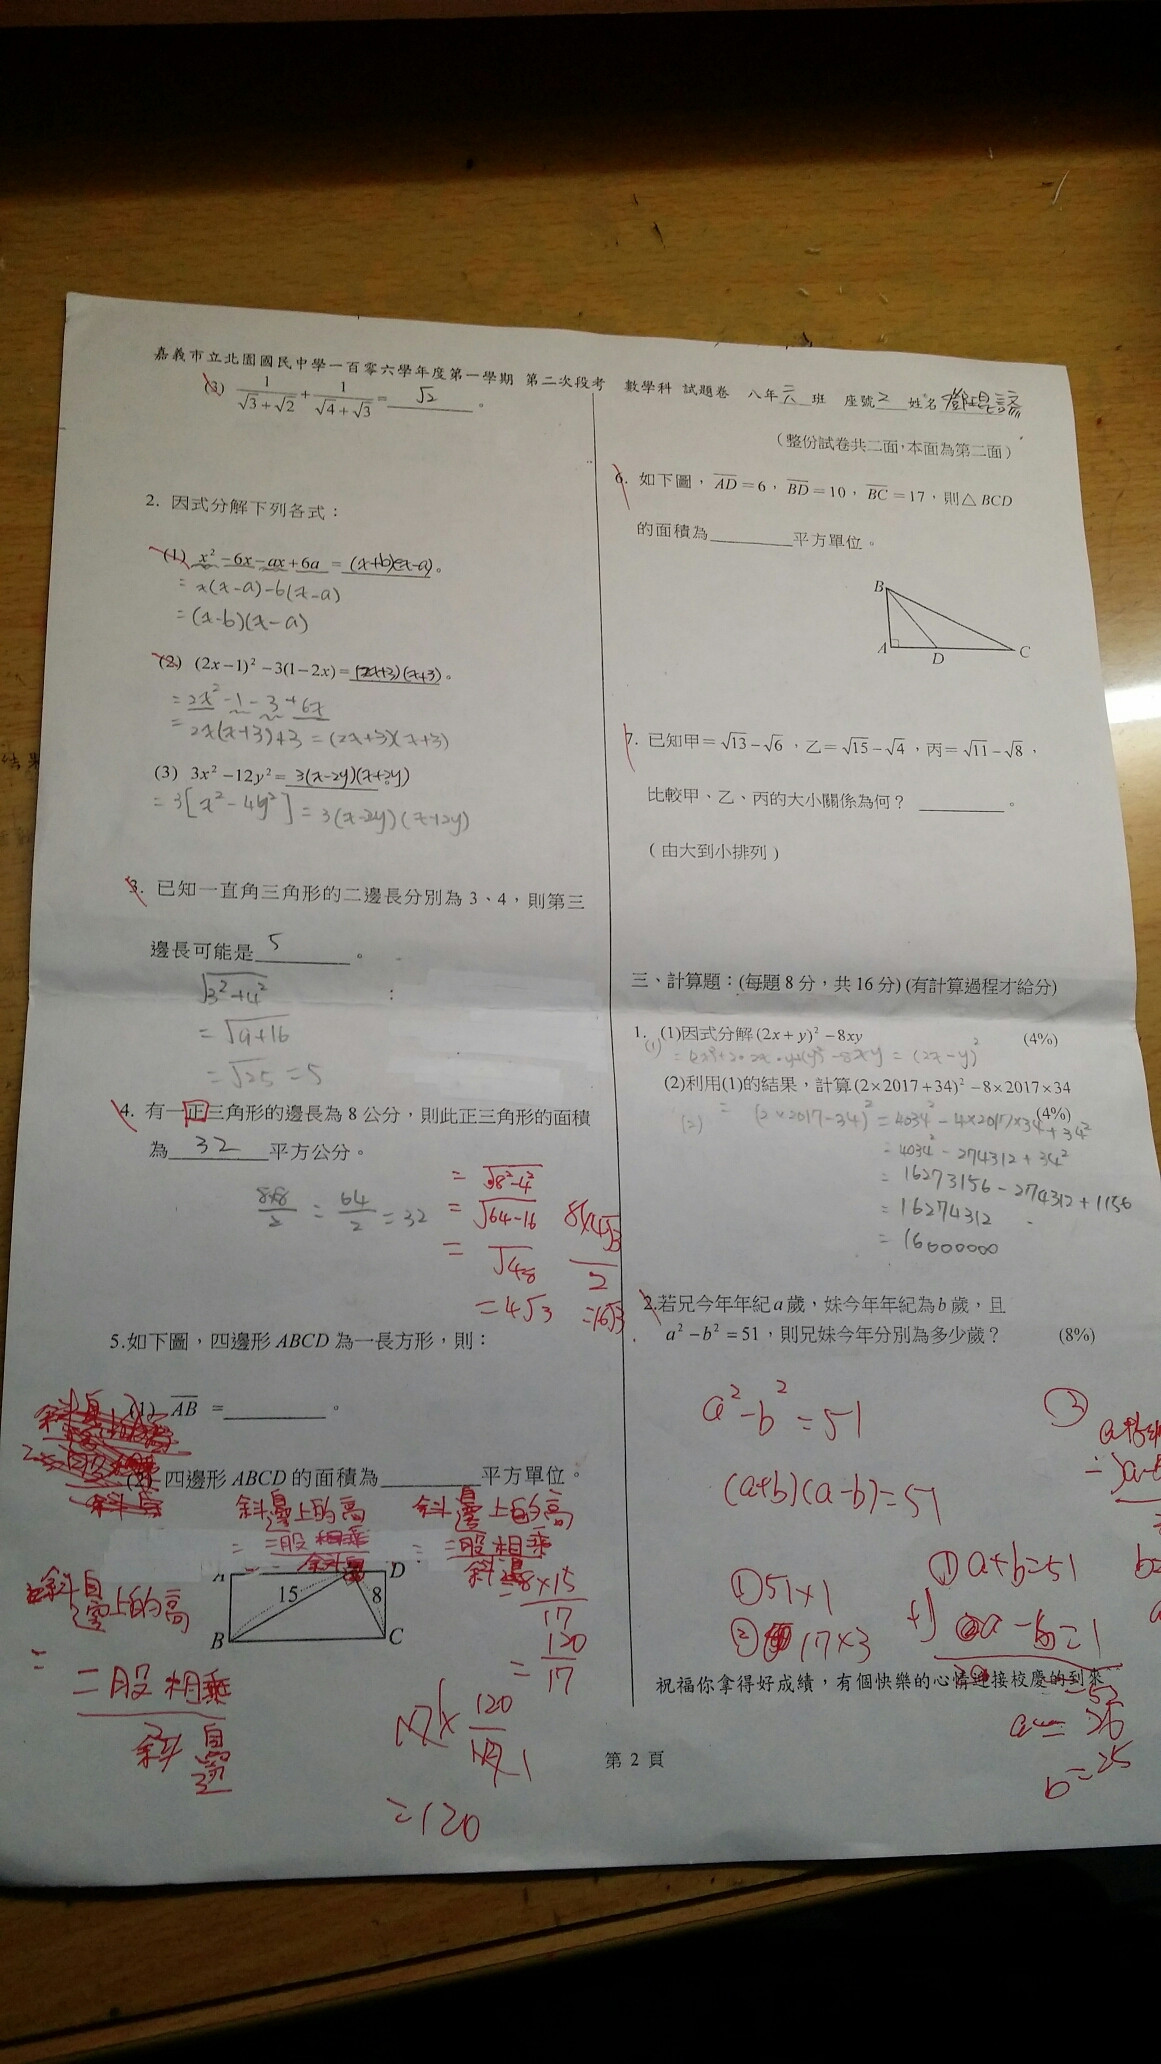 嘉義市立北園國民中學一百零六學年度第一學期 第二次段考 數學科 試題卷 八年六班 座號2 姓名
(3) 1/(√3+√2) + 1/(√4+√3) = √2 。
2. 因式分解下列各式：
(1) x²-6x-ax+6a = (x+6)(x-a)。
= x(x-a)-6(x-a)
= (x-6)(x-a)
(2) (2x-1)²-3(1-2x)= (2x+3)(x+3)。
= 2x²-1-3+6x
= 2x(x+3)+3 = (2x+3)(x+3)
(3) 3x²-12y²= 3(x-2y)(x+2y)
= 3[x²-4y²] = 3(x-2y)(x+2y)
3. 已知一直角三角形的二邊長分別為 3、4，則第三
邊長可能是 5 。
√3²+4²
= √9+16
= √25 = 5
4. 有一正三角形的邊長為 8 公分，則此正三角形的面積
為 32 平方公分。
8×8/2 = 64/2 = 32
= √8²-4²
= √64-16
= √48
= 4√3
8×4√3/2
=16√3
5.如下圖，四邊形 ABCD 為一長方形，則：
(1) AB =________。
(2) 四邊形 ABCD 的面積為________平方單位。
斜邊上的高
= 二股相乘/斜邊
斜邊上的高
= 二股相乘/斜邊
= 8×15/17
= 120/17
A D
15 8
B C
斜邊上的高
= 二股相乘/斜邊
17× 120/17
=120
（整份試卷共二面，本面為第二面）
6. 如下圖， AD=6， BD=10， BC=17，則△BCD
的面積為________平方單位。
B
A D C
7. 已知甲=√13-√6 ，乙=√15-√4 ，丙=√11-√8 ，
比較甲、乙、丙的大小關係為何？ ________。
( 由大到小排列 )
三、計算題：(每題 8 分，共 16 分) (有計算過程才給分)
1. (1)因式分解 (2x+y)²-8xy (4%)
(1) = 4x²+2·2x·y+y²-8xy = (2x-y)²
(2)利用(1)的結果，計算 (2×2017+34)²-8×2017×34 (4%)
(2) = (2×2017-34)² = 4034²-4×2017×34+34²
= 4034²-274312+34²
= 16273156-274312+1156
= 16274312
= 16000000
2.若兄今年年紀 a 歲，妹今年年紀為 b 歲，且
a²-b²=51，則兄妹今年分別為多少歲？ (8%)
a²-b²=51
(a+b)(a-b)=51
① 51×1
② 17×3
① a+b=51
+) a-b=1
=52
a=26
b=25
祝福你拿得好成績，有個快樂的心情迎接校慶的到來
第 2 頁